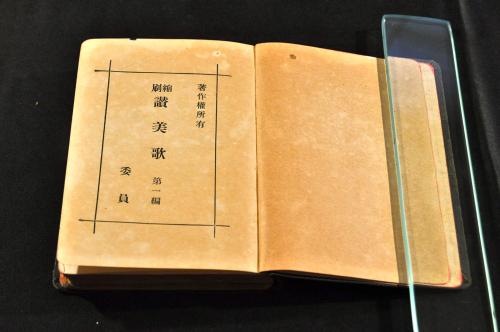 著作權所有
縮刷 讚美歌 第一編
委員